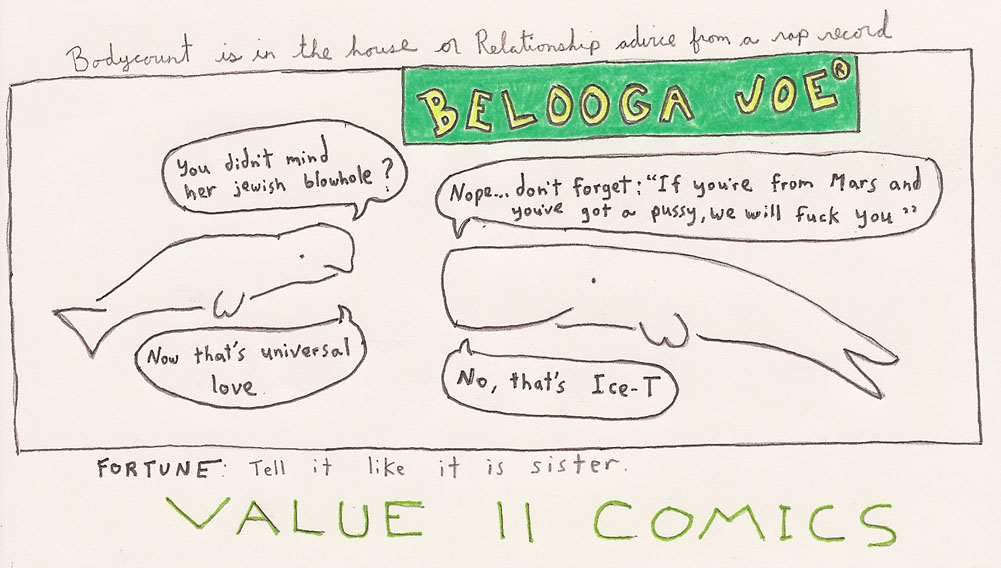 Bodycount is in the house or Relationship advice from a rap record
BELOOGA JOE®
You didn't mind
her jewish blowhole?
Nope... don't forget: "If you're from Mars and
you've got a pussy, we will fuck you"
Now that's universal
love
No, that's Ice-T
FORTUNE: Tell it like it is sister.
VALUE 11 COMICS